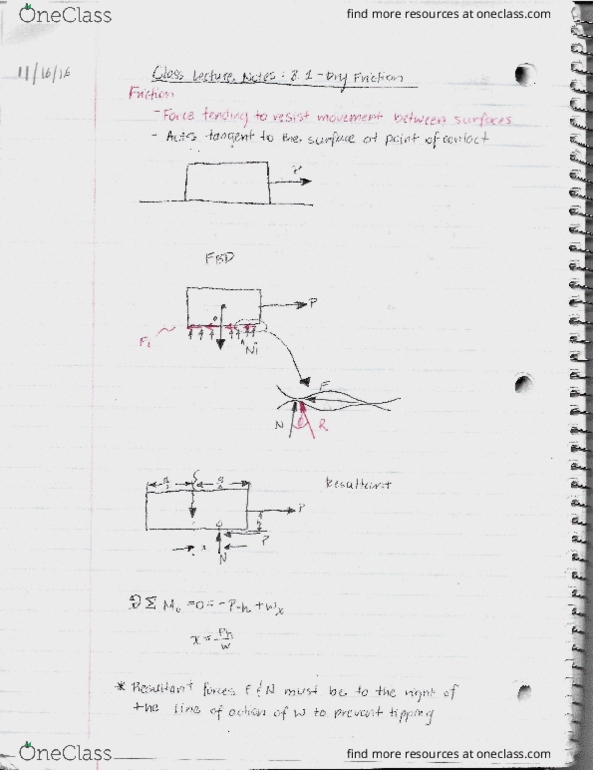 OneClass
find more resources at oneclass.com
11/16/16
Class Lecture Notes: 8.1 - Dry Friction
Friction
- Force tending to resist movement between surfaces
- Acts tangent to the surface at point of contact
FBD
P
Fi
Ni
F
N
R
Resultant
a/2
a/2
P
h
F
x
N
ΣMo =0= -Ph +Wx
x = Ph/W
* Resultant forces F & N must be to the right of
the line of action of W to prevent tipping
OneClass
find more resources at oneclass.com